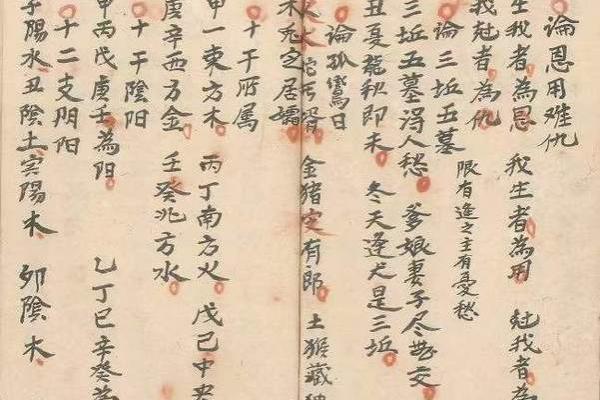 ○論恩用难仇
生我者為恩 我生者為用 尅我者為
我尅者為仇
○論三坵五墓 限有逢之主有憂愁
三坵五墓得人愁 爹娘妻子尽無交
丑夏龍秋即未 冬天逢犬是三坵
○論孤鸞日
火 金猪 有郎 土猴藏
木 定居孀
○十干所属
甲一東方木 丙丁南方火 戊己中央
庚辛西方金 壬癸北方水
○十干陰阳
甲丙戊庚壬為阳 乙丁己辛癸為
○十二支阴阳
子陽水 丑陰土 寅陽木 卯陰木